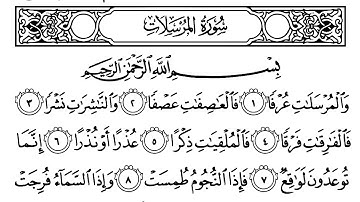 سُورَةُ المُرْسَلَات
بِسْمِ اللَّهِ الرَّحْمَٰنِ الرَّحِيمِ
وَالْمُرْسَلَاتِ عُرْفًا ١ فَالْعَاصِفَاتِ عَصْفًا ٢ وَالنَّاشِرَاتِ نَشْرًا ٣
فَالْفَارِقَاتِ فَرْقًا ٤ فَالْمُلْقِيَاتِ ذِكْرًا ٥ عُذْرًا أَوْ نُذْرًا ٦ إِنَّمَا
تُوعَدُونَ لَوَاقِعٌ ٧ فَإِذَا النُّجُومُ طُمِسَتْ ٨ وَإِذَا السَّمَاءُ فُرِجَتْ